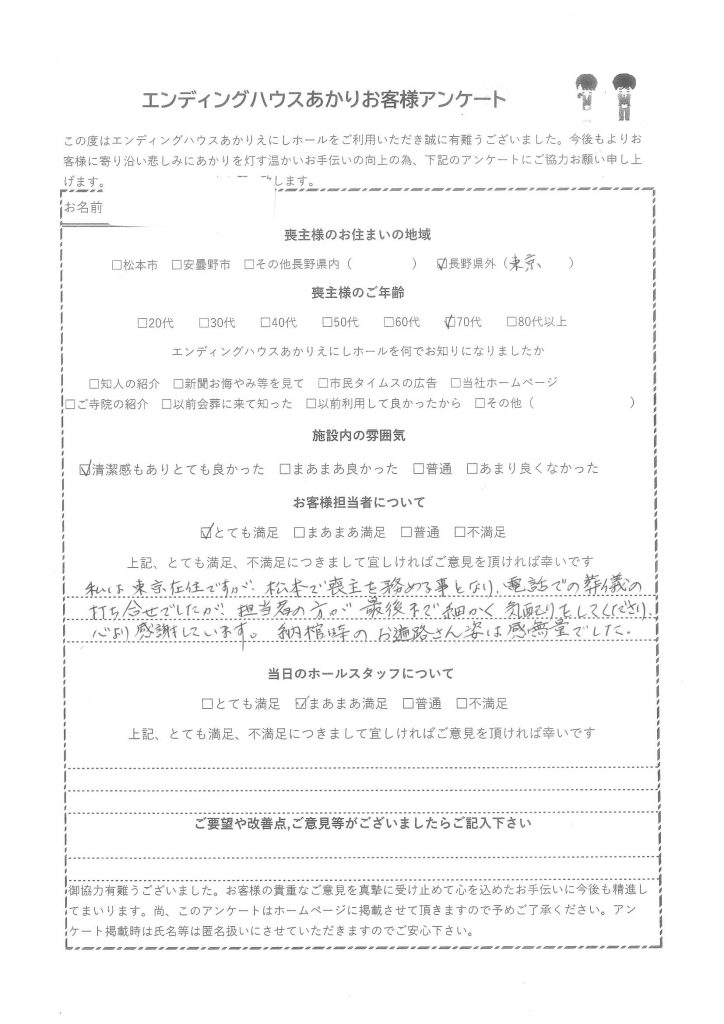 エンディングハウスあかりお客様アンケート
この度はエンディングハウスあかりえにしホールをご利用いただき誠に有難うございました。今後もよりお
客様に寄り沿い悲しみにあかりを灯す温かいお手伝いの向上の為、下記のアンケートにご協力お願い申し上
げます。 します。
お名前
喪主様のお住まいの地域
□松本市 □安曇野市 □その他長野県内( ) ☑長野県外(東京、 )
喪主様のご年齢
□20代 □30代 □40代 □50代 □60代 ☑70代 □80代以上
エンディングハウスあかりえにしホールを何でお知りになりましたか
□知人の紹介 □新聞お悔やみ等を見て □市民タイムスの広告 □当社ホームページ
□ご寺院の紹介 □以前会葬に来て知った □以前利用して良かったから □その他( )
施設内の雰囲気
☑清潔感もありとても良かった □まあまあ良かった □普通 □あまり良くなかった
お客様担当者について
☑とても満足 □まあまあ満足 □普通 □不満足
上記、とても満足、不満足につきまして宜しければご意見を頂ければ幸いです
私は東京在住ですが、松本で喪主を務める事となり、電話での葬儀の
打ち合せでしたが、担当者の方が最後まで細かく気配りをしてくださり、
心より感謝しています。納棺時のお遍路さん姿は感無量でした。
当日のホールスタッフについて
□とても満足 ☑まあまあ満足 □普通 □不満足
上記、とても満足、不満足につきまして宜しければご意見を頂ければ幸いです
ご要望や改善点,ご意見等がございましたらご記入下さい
御協力有難うございました。お客様の貴重なご意見を真摯に受け止めて心を込めたお手伝いに今後も精進し
てまいります。尚、このアンケートはホームページに掲載させて頂きますので予めご了承ください。アン
ケート掲載時は氏名等は匿名扱いにさせていただきますのでご安心下さい。